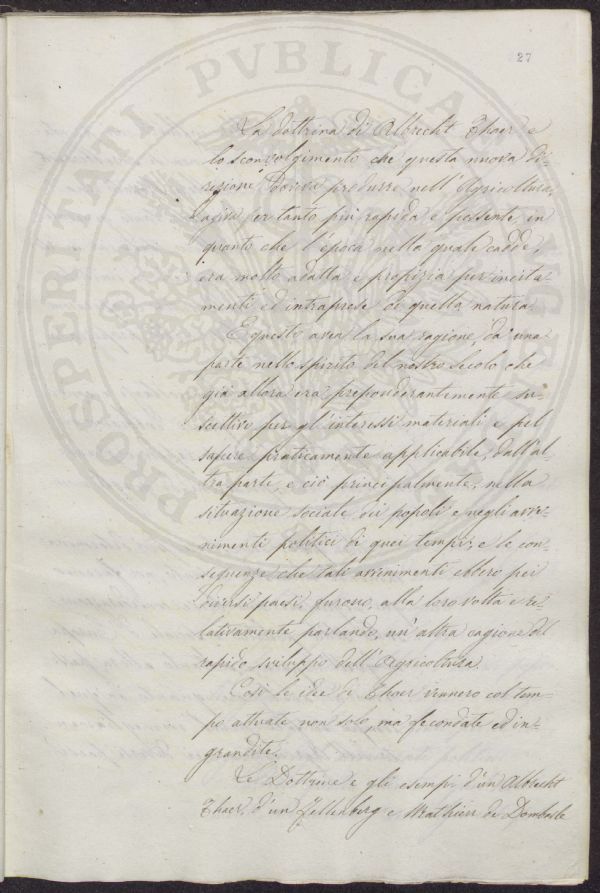 27
PROSPERITATI PVBLICAE
La dottrina di Albrecht Thaer e
lo sconvolgimento che questa nuova di-
rezione dovea produrre nell'Agricoltura,
agiva per tanto più rapida e possente in
quanto che l'época nella quale cadde,
era molto adatta e propizia per incita-
menti ed intraprese di quella natura.
E questo avea la sua ragione da una
parte nello spirito del nostro secolo che
già allora era preponderantemente su-
scettivo per gl'interessi materiali e pel
sapere praticamente applicabile, dall'al-
tra parte, e ciò principalmente, nella
situazione sociale dei popoli e negli avve-
nimenti politici di quei tempi; e le con-
seguenze che tali avvenimenti ebbero pei
diversi paesi, furono, alla loro volta e re-
lativamente parlando, un'altra cagione del
rapido sviluppo dell'Agricoltura.
Così le idee di Thaer vennero col tem-
po attuate non solo, ma fecondate ed in-
grandite.
Le Dottrine e gli esempi d'un Albrecht
Thaer, d'un Fellenberg e Mathieu de Dombasle